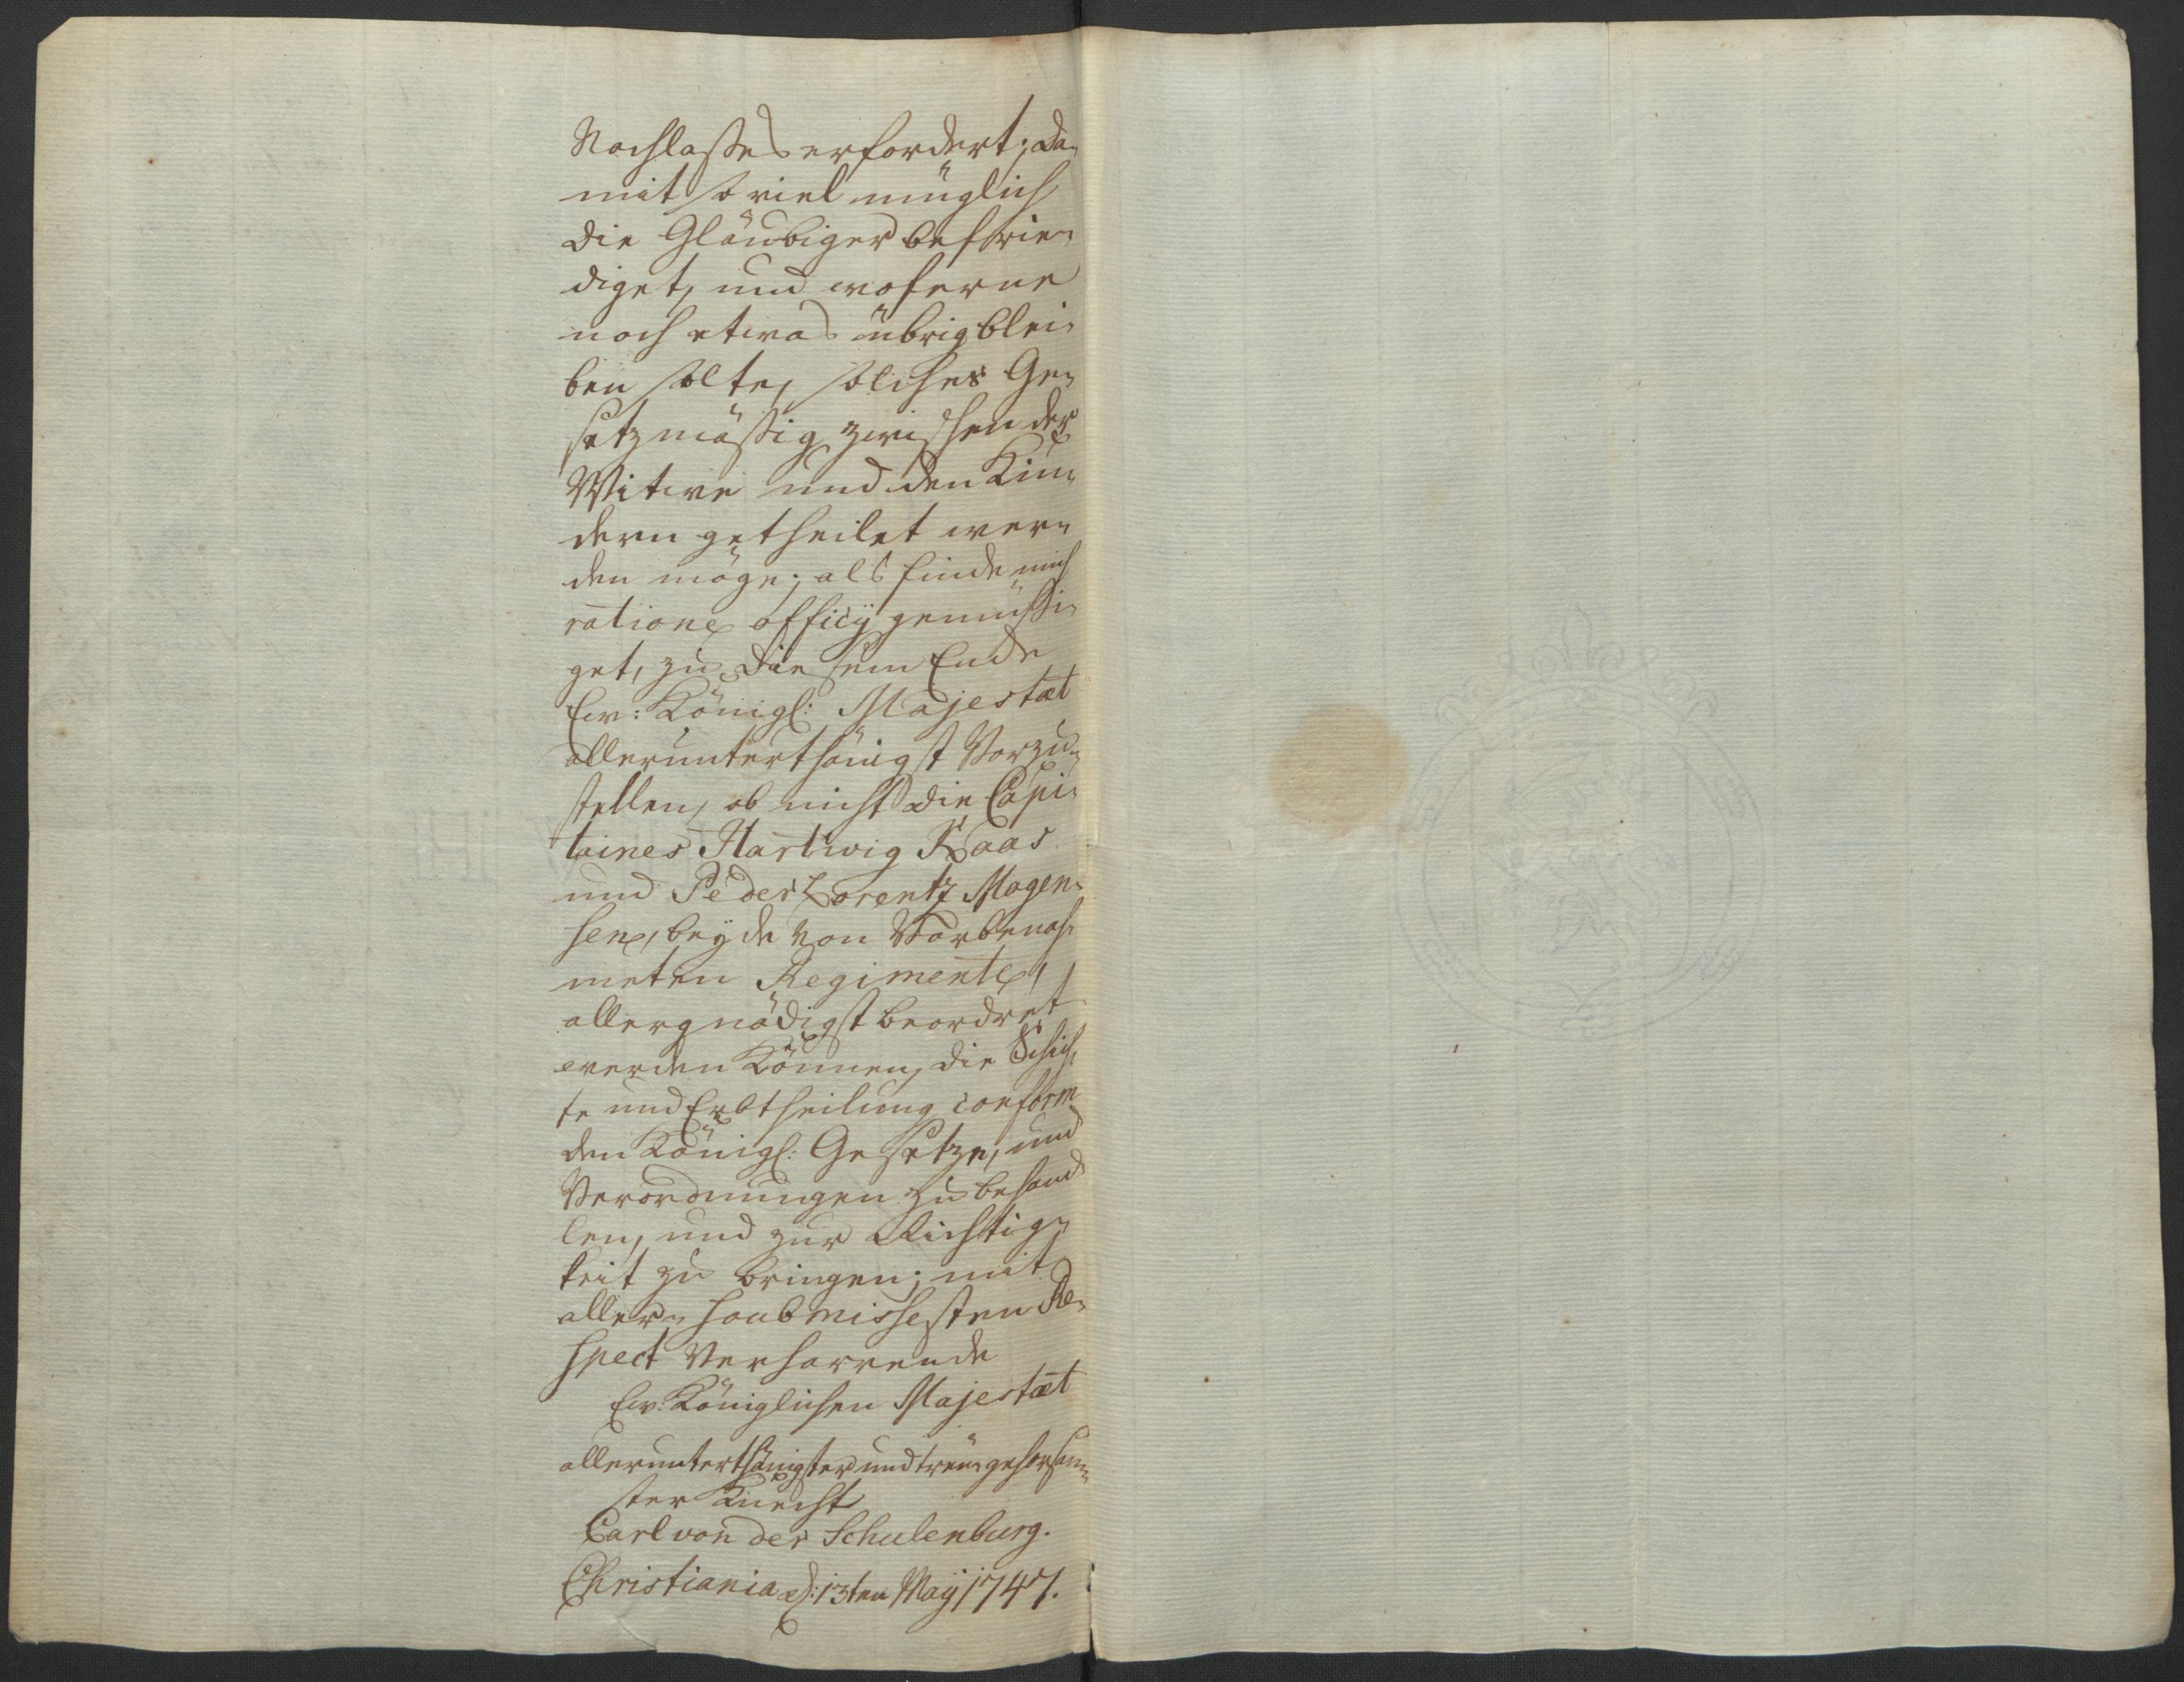 Nachlaßes erfordert; da-
mit so viel müglich
die Gläubiger befrie-
diget, und woferne
noch etwas übrig blei-
ben solte, solches Ge-
setzmäßig zwischen der
Witwe und den Kin-
dern getheilet wer-
den möge; als finde mich
ratione officij gemüßi-
get, zu diesem Ende
Ew: Königl: Majestæt
allerunterthänigst Vorzu-
stellen, ob nicht die Capi-
taines Hartwig Kaas
und Peder Lorentz Mogen-
sen, beyde von Vorbenah-
meten Regimente,
allergnädigst beordret
werden können, die Schich-
te und Erbtheilung conform
den Königl: Gesetze, und
Verordnungen zu behand-
len, und zur Richtig-
keit zu bringen; mit
aller-
spect Verharrende
Ew: Königlichen Majestæt
allerunterthänigster und treu-gehorsam-
ster Knecht
Carl von der Schulenburg.
Christiania d: 13ten Maij 1747.